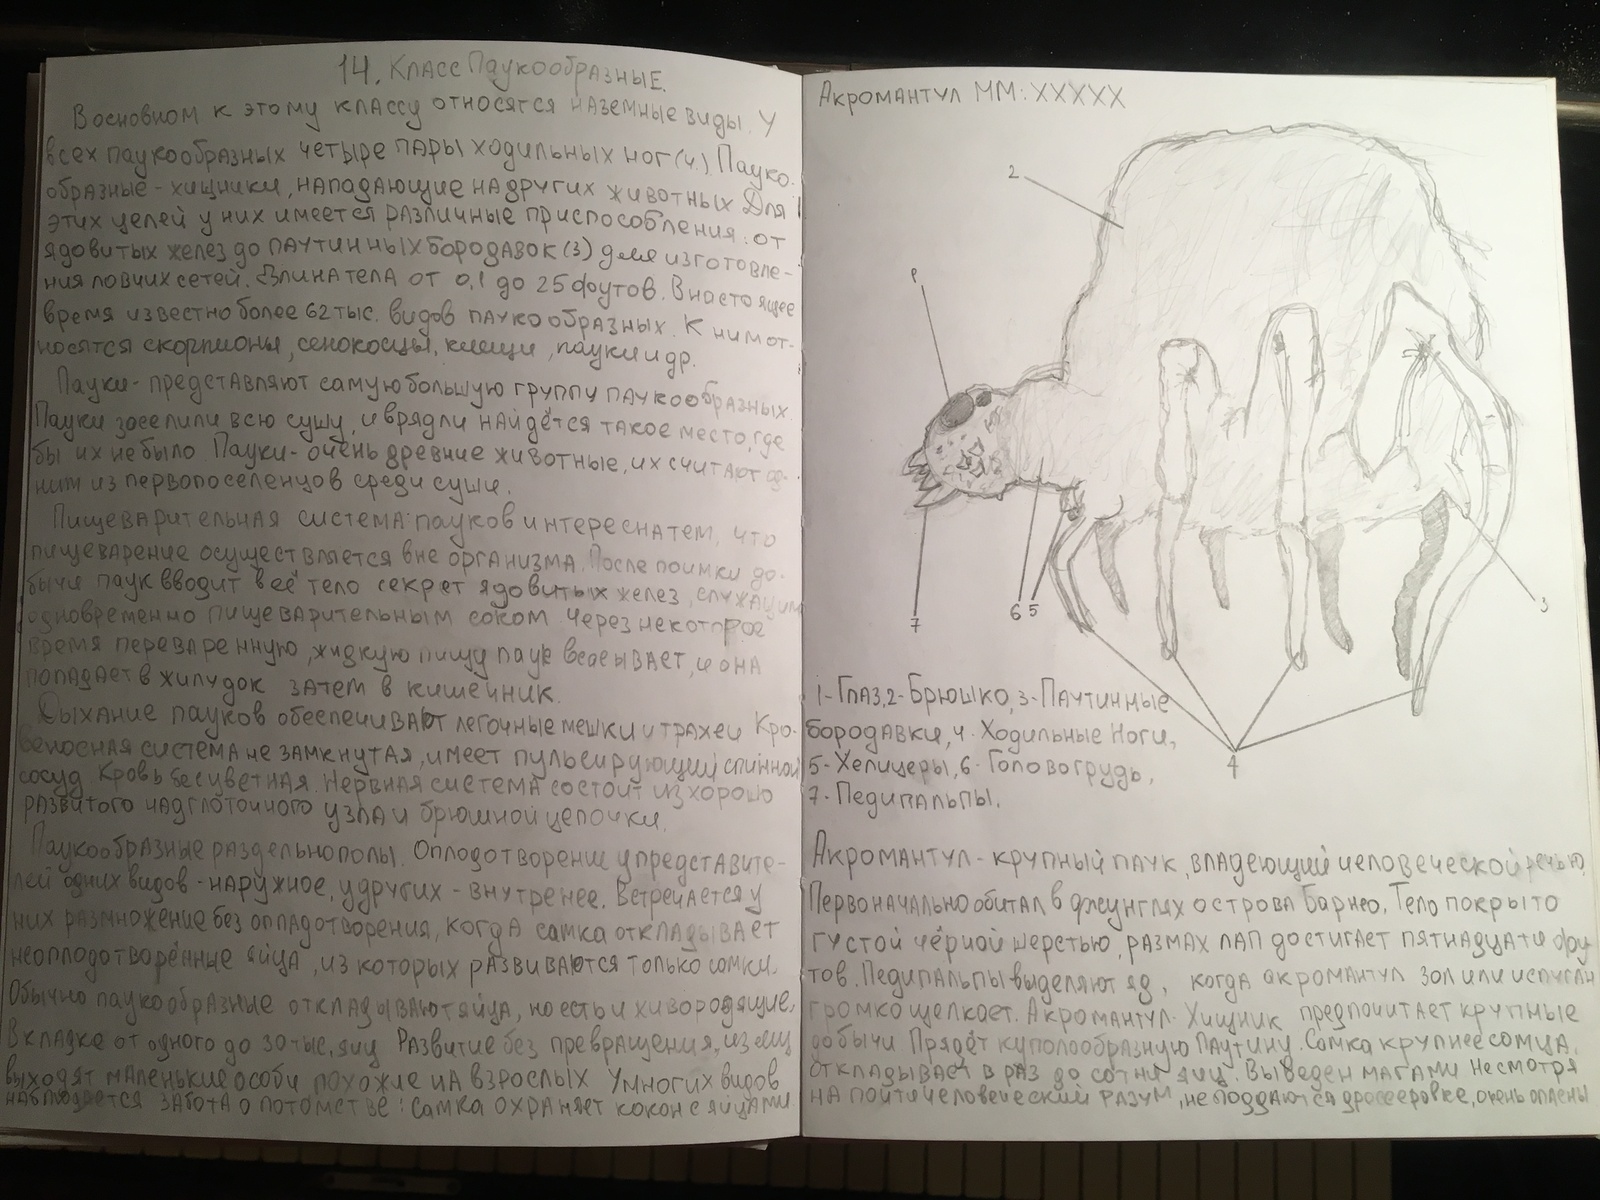 14. Класс Паукообразные.
В основном к этому классу относятся наземные виды. У
всех паукообразных четыре пары ходильных ног (4.) Пауко-
образные - хищники, нападающие на других животных Для
этих целей у них имеется различные приспособления: от
ядовитых желез до паутинных бородавок (3) для изготовле-
ния ловчих сетей. Длина тела от 0,1 до 25 футов. В настоящее
время известно более 62 тыс. видов паукообразных. К ним от-
носятся скорпионы, сенокосцы, клещи, пауки и др.
Пауки - представляют самую большую группу паукообразных.
Пауки заселили всю сушу, и врядли найдётся такое место, где
бы их не было. Пауки - очень древние животные, их считают од-
ним из первопоселенцов среди суши.
Пищеварительная система пауков интересна тем, что
пищеварение осуществляется вне организма. После поимки до-
бычи паук вводит в её тело секрет ядовитых желез, служащим
одновременно пищеварительным соком. Через некоторое
время переваренную, жидкую пищу паук всасывает, и она
попадает в жилудок затем в кишечник.
Дыхание пауков обеспечивают легочные мешки и трахеи Кро-
веносная система не замкнутая, имеет пульсирующий спинной
сосуд. Кровь бесцветная. Нервная система состоит из хорошо
развитого надглоточного узла и брюшной цепочки.
Паукообразные раздельнополы. Оплодотворение у представите-
лей одних видов - наружное, у других - внутренее. Встречается у
них размножение без опладотворения, когда самка откладывает
неоплодотворённые яйца, из которых развиваются только самки.
Обычно паукообразные откладывают яйца, но есть и живородящие.
В кладке от одного до 30 тыс. яиц Развитие без превращения, из яиц
выходят маленькие особи похожие на взрослых У многих видов
наблюдается забота о потомстве: самка охраняет кокон с яйцами.
Акромантул ММ: ХХХХХ
2
1
7
6 5
3
4
1- Глаз, 2- Брюшко, 3- Паутинные
бородавки, 4- Ходильные Ноги,
5- Хелицеры, 6- Головогрудь,
7- Педипальпы.
Акромантул - крупный паук, владеющий человеческой речью.
Первоначально обитал в джунглях острова Барнео. Тело покрыто
густой чёрной шерстью, размах лап достигает пятнадцати фу-
тов. Педипальпы выделяют яд, когда акромантул зол или испуган
громко щелкает. Акромантул - Хищник предпочитает крупные
добычи. Прядёт куполообразную Паутину. Самка крупнее сомца,
откладывает в раз до сотни яиц. Выведен магами несмотря
на почти человеческий разум, не поддаются дрессеровке, очень опасны